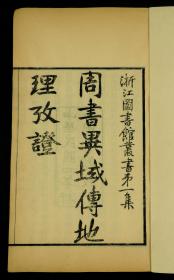 浙江圖書館叢書第一集
周書異域傳地
理攷證